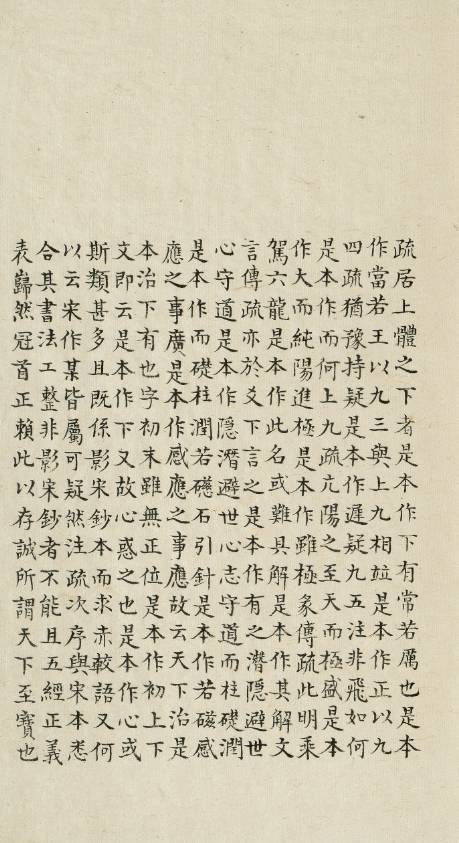 疏居上體之下者是本作下有常若厲也是本
作當若王以九三與上九相竝是本作正以九
四疏猶豫持疑是本作遲疑九五注非飛如何
是本作而何上九疏亢陽之至天而極盛是本
作大而純陽進極是本作雖極象傳疏此明乘
駕六龍是本作此名或難具解是本作其解文
言傳疏亦於爻下言之是本作有之潛隱避世
心守道是本作隱潛避世心志守道而柱礎潤
是本作而礎柱潤若礠石引針是本作若磁感
應之事廣是本作感應之事應故云天下治是
本治下有也字初末雖無正位是本作初上下
文即云是本作下又故心惑之也是本作心或
斯類甚多且既係影宋鈔本而求赤較語又何
以云宋作某皆屬可疑然注疏次序與宋本悉
合其書法工整非影宋鈔者不能且五經正義
表巋然冠首正賴此以存誠所謂天下至寶也